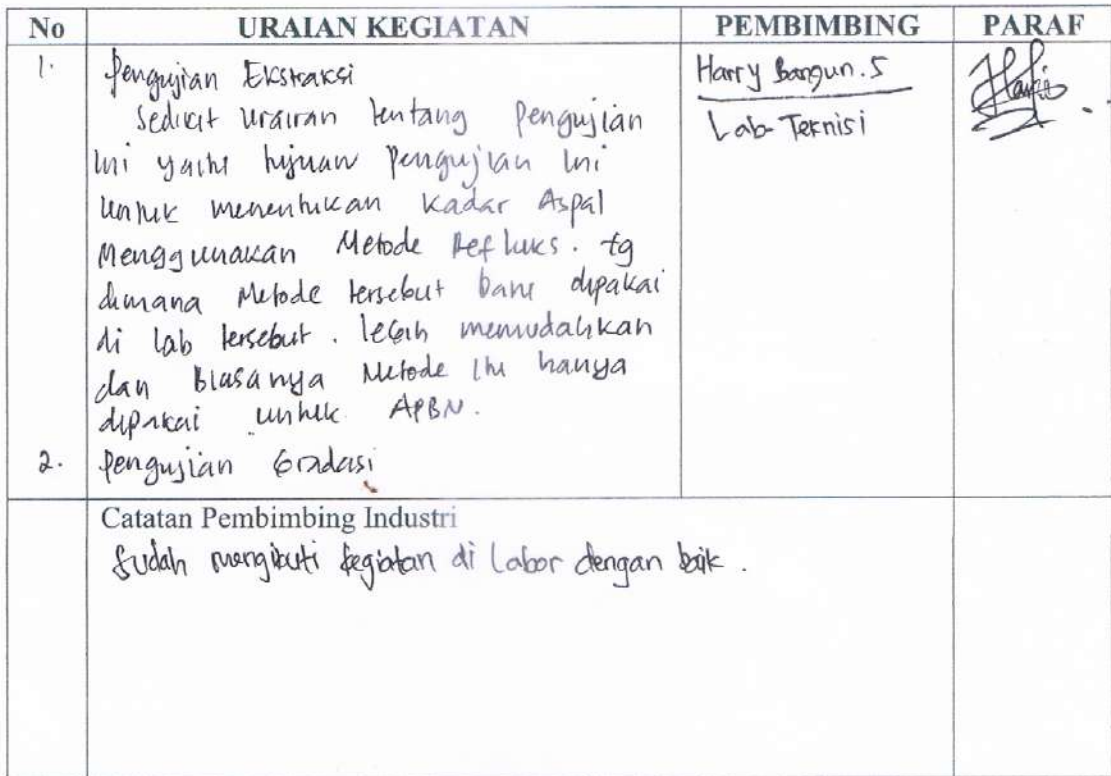 No URAIAN KEGIATAN PEMBIMBING PARAF
1. Pengujian Ekstraksi Harry Bangun.S
Sedikit urairan tentang Pengujian Lab-Teknisi
ini yaitu tujuan Pengujian ini
untuk menentukan kadar Aspal
Menggunakan Metode Refluks. tg
dimana Metode tersebut baru dipakai
di lab tersebut. lebih memudahkan
dan biasanya Metode itu hanya
dipakai untuk APBN.
2. Pengujian Gradasi
Catatan Pembimbing Industri
Sudah mengikuti kegiatan di Labor dengan baik.